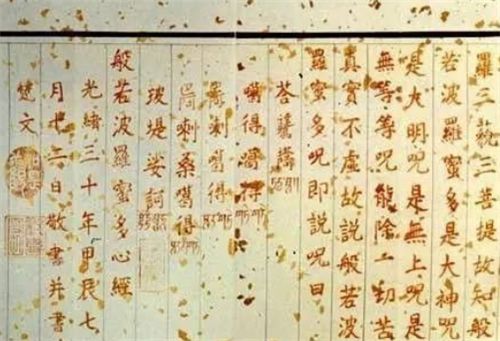 羅三藐三菩提故知般
若波羅蜜多是大神咒
是大明咒是無上咒是
無等等咒能除一切苦
真實不虛故說般若波
羅蜜多咒即說咒曰
噶得噶得
喇噶得
喇桑噶得
堤娑訶
般若波羅蜜多心經
光緒三十年甲辰七
月廿六日敬書并書
梵文